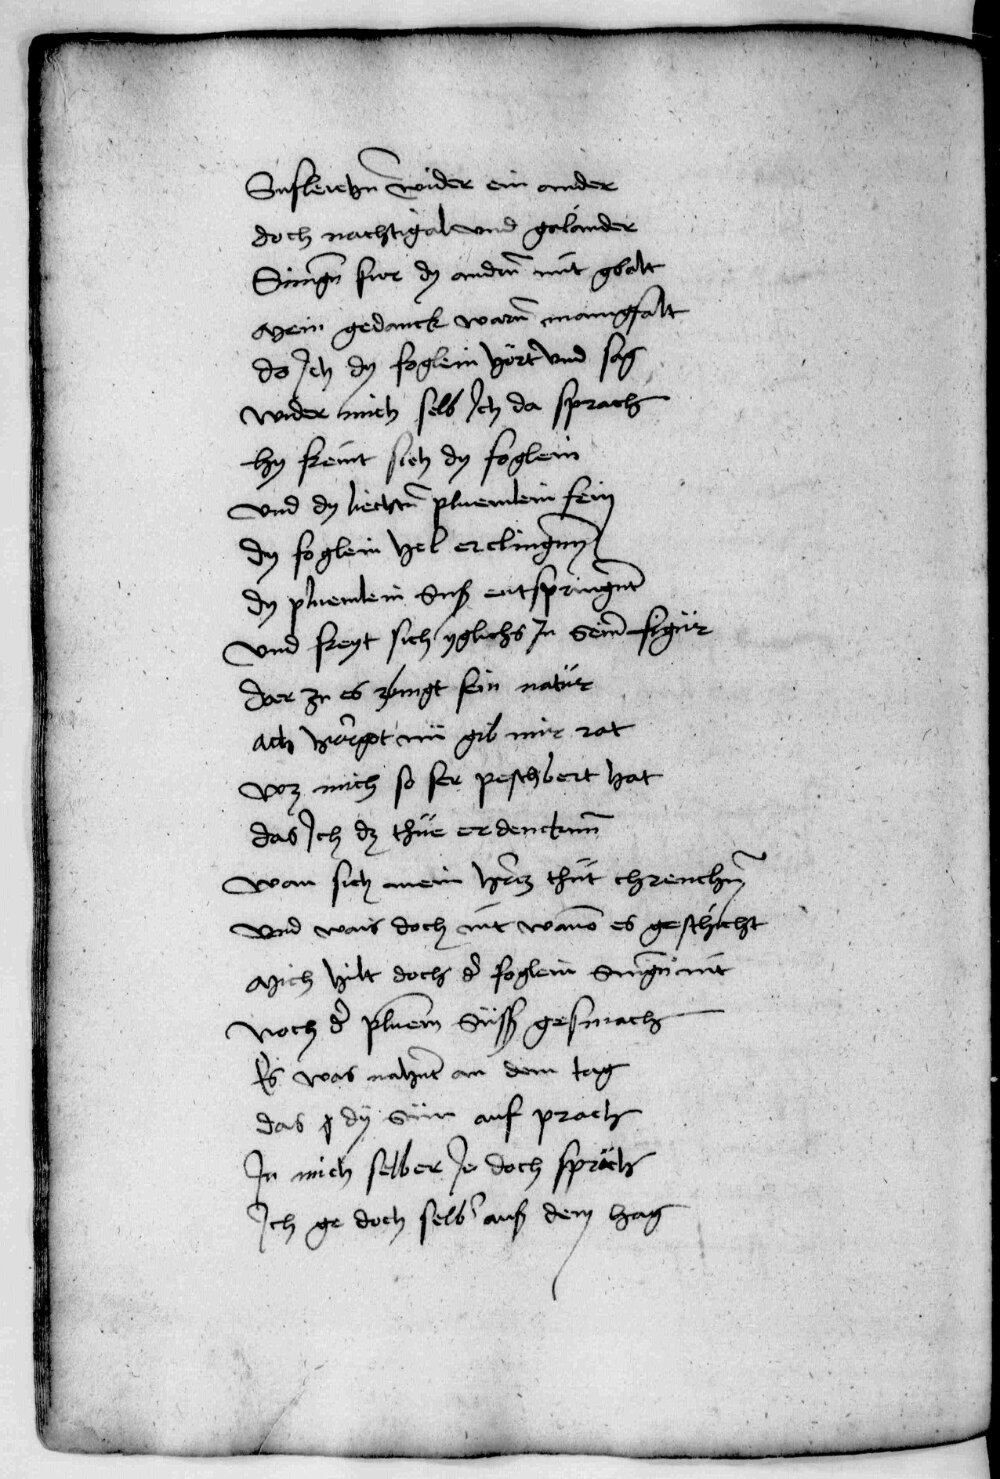 Susleichn̄ wider ein ander
doch nachtigal vnd galander
Singn̄ fur dy andrn̄ mit gbalt
Mein gedanck warn̄ manigfalt
do Jch dy foglein hört vnd sag
wider mich selb Jch da sprach
hy freut sich dy foglein
vnd dy liechtn̄ pluemlein fein
dy foglein hel erclingnn
dy pluemlein Suß entspringnt
vnd freyt sich ygluchs Jn seim figür
dar zu es zbingt sein natür
ach hergot nü gib mir rat
wz mich so ser peschbert hat
das Jch dz thüe erdencknn̄
wan sich mein hercz thüt chrenchn̄
vnd wais doch nit wauō es geschicht
Mich hilt doch d̄ foglein Singn̄ nit
noch d̄ pluem̄ Süss gesmach
Es was nahent an dem tag
das dÿ Sün auf prach
Jn mich selber Jo doch sprach
Jch ge doch selb auß dem hag